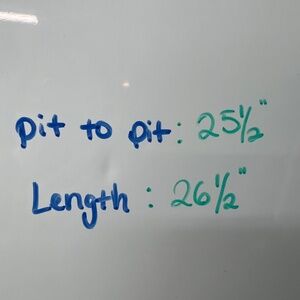 pit to pit: 25½"
Length : 26½"